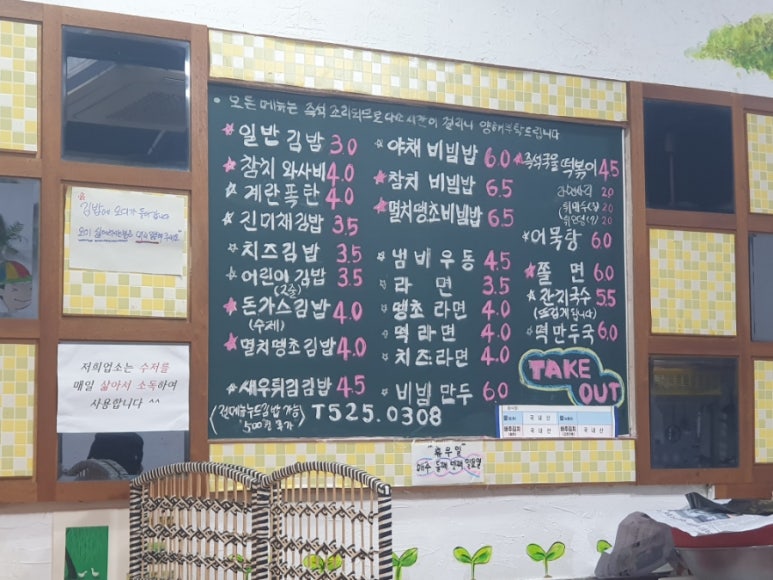 · 모든 메뉴는 즉석 조리되므로 다소 시간이 걸리니 양해부탁드립니다
☆ 일반김밥 3.0
☆ 참치 와사비 4.0
☆ 계란폭탄 4.0
☆ 진미채김밥 3.5
☆ 치즈김밥 3.5
☆ 어린이김밥 3.5
(2줄)
☆ 돈가스김밥 4.0
(수제)
☆ 멸치땡초김밥 4.0
☆ 새우튀김김밥 4.5
☆ 야채 비빔밥 6.0
☆ 참치 비빔밥 6.5
☆ 멸치땡초비빔밥 6.5
☆ 냄비우동 4.5
☆ 라면 3.5
☆ 땡초 라면 4.0
☆ 떡라면 4.0
☆ 치즈라면 4.0
☆ 비빔만두 6.0
☆ 즉석국물떡볶이 4.5
2.0
2.0
2.0
☆ 어묵탕 6.0
☆ 쫄면 6.0
☆ 잔치국수 5.5
☆ 떡만두국 6.0
TAKE
OUT
500원 추가
T525.0308
국내산
국내산
배추김치
국내산
국내산
"휴무일"
매주 둘째 넷째 일요일
김밥에 오이가
저희업소는 수저를
매일 삶아서 소독하여
사용합니다 ^^